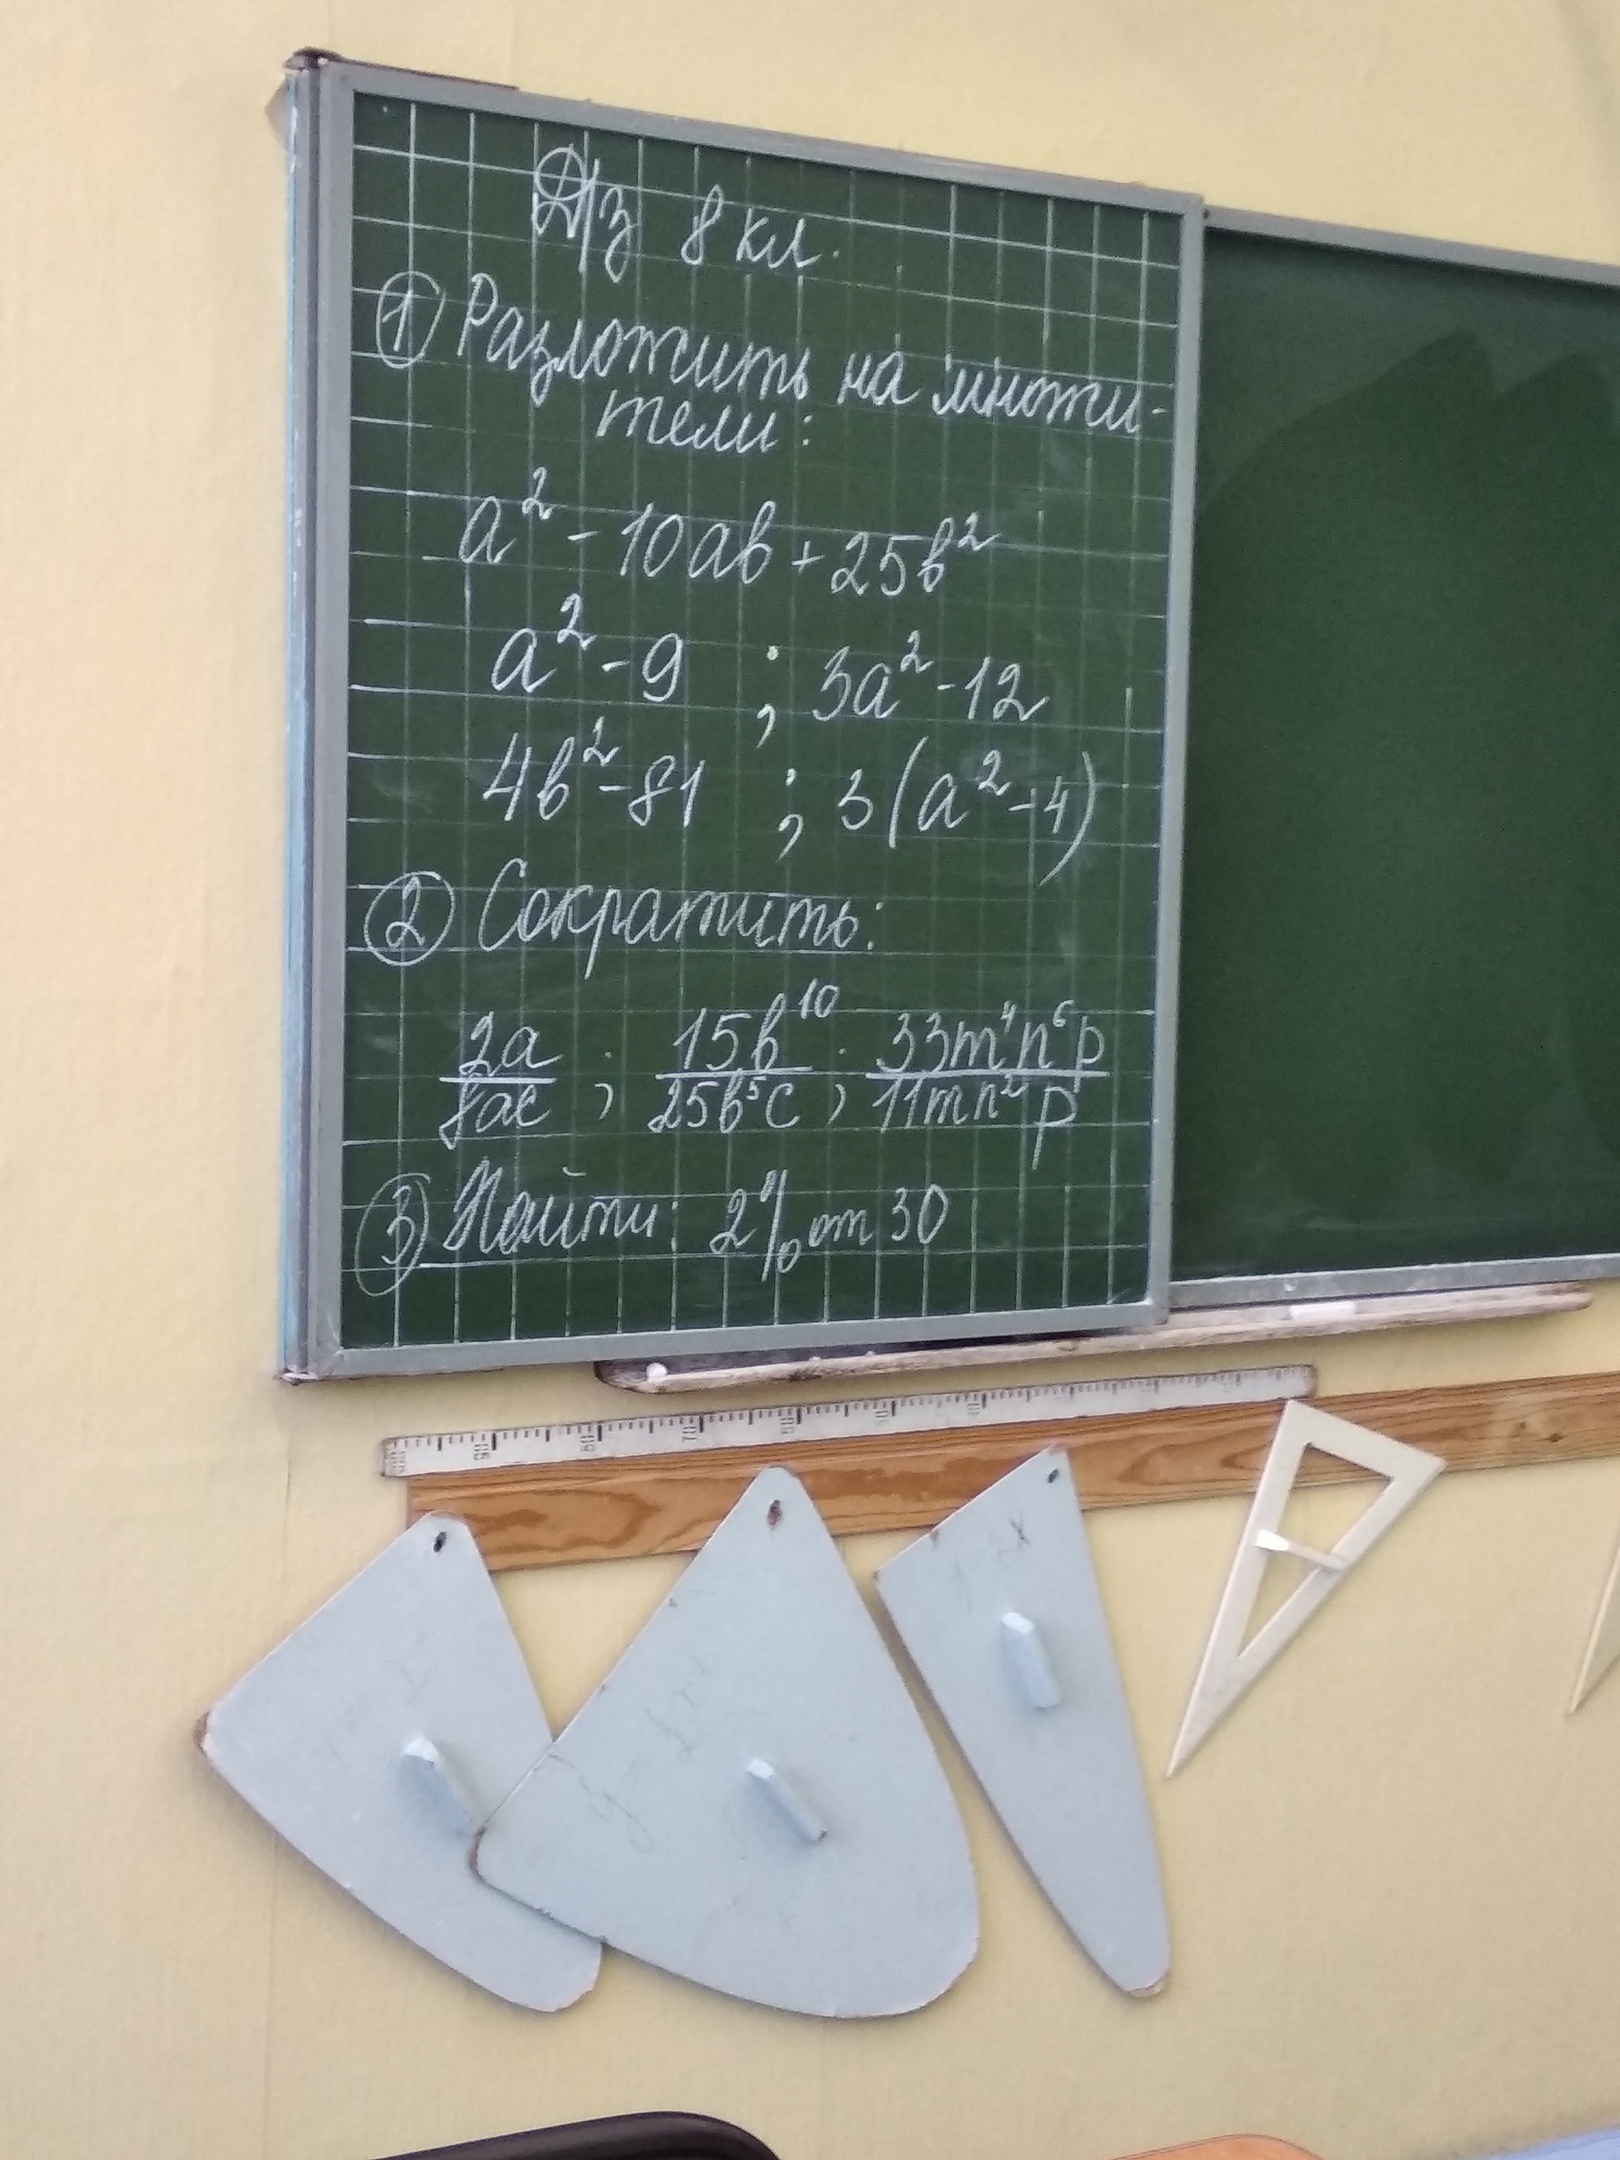 Д/з 8 кл.
① Разложить на множи-
тели:
a² - 10ab + 25b²
a² - 9 ; 3a² - 12
4b² - 81 ; 3(a² - 4)
② Сократить:
2a/8ac ; 15b¹⁰/25b⁵c ; 33m⁴n⁶p/11mn²p
③ Найти: 2% от 30